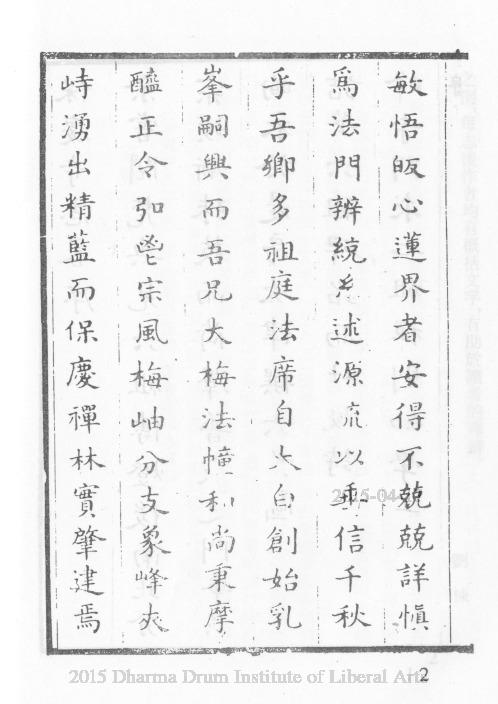 敏悟皈心蓮界者安得不兢兢詳愼
爲法門辨統系述源流以垂信千秋
乎吾鄉多祖庭法席自太白創始乳
峯嗣興而吾兄大梅法幢和尚秉摩
醯正令弘嵒宗風梅岫分支象峰夾
峙湧出精藍而保慶禪林實肇建焉
2015 Dharma Drum Institute of Liberal Arts
2